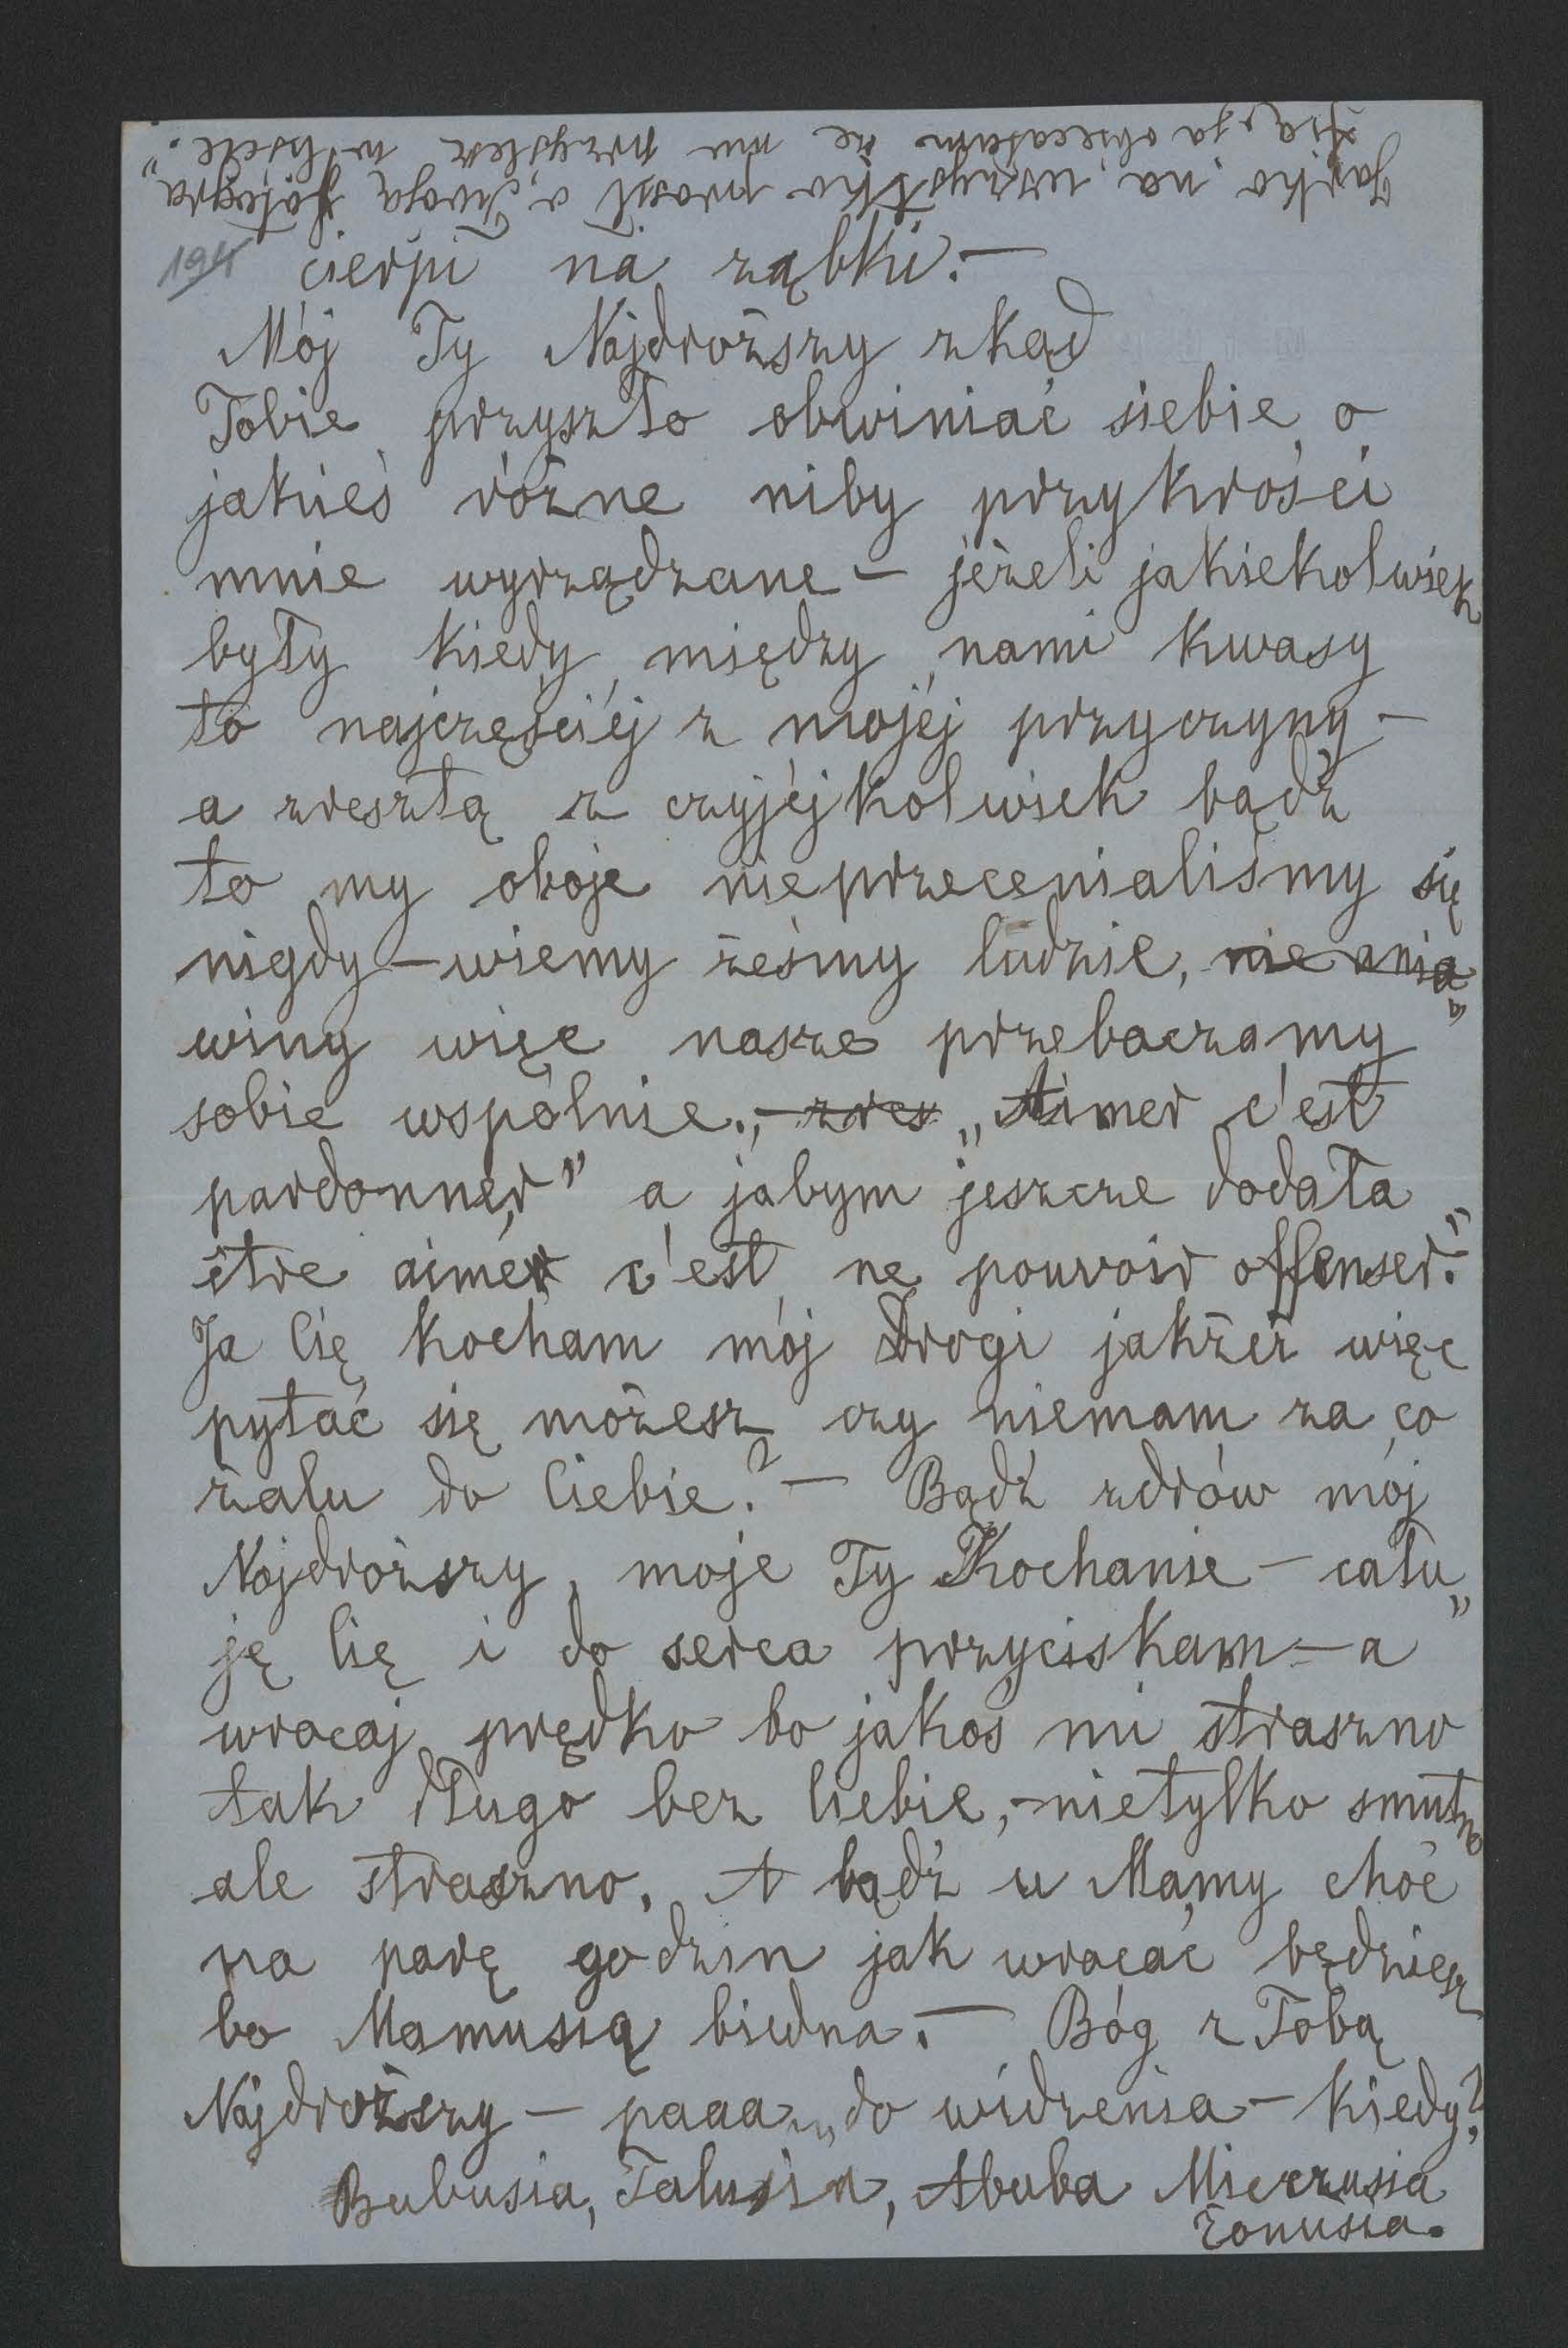 Jaśko na wszystko prosił o Twoją fotogra„
fią, ja obiecałam że mu przyślesz w liście.
194
cierpi na ząbki. —
Mój Ty Najdroższy zkąd
Tobie przyszło obwiniać siebie o
jakieś różne niby przykrości
mnie wyrządzane — jeżeli jakiekolwiek
były kiedy między nami kwasy
to najczęściéj z mojéj przyczyny —
a zresztą z czyjéjkolwiek bądź
to my oboje nieprzecenialiśmy się
nigdy — wiemy żeśmy ludzie, nie ania„
winy więc nasze przebaczamy
sobie wspólnie., — zres „Aimer c'est
pardonner" a jabym jeszcze dodała
être aimér c'est ne pouvoir offenser."
Ja Cię kocham mój Drogi jakżeż więc
pytać się możesz czy niemam za co
żalu do Ciebie? — Bądź zdrów mój
Najdroższy, moje Ty Kochanie — cału„
ję Cię i do serca przyciskam — a
wracaj prędko bo jakoś mi straszno
tak długo bez Ciebie, — nietylko smutno
ale straszno. A bądź u Mamy choć
na parę godzin jak wracać będziesz
bo Mamusią biedna. — Bóg z Tobą
Najdroższy — paaa„ do widzenia — kiedy?
Bubusia, Talusia, Abuba Mieczusia
Żonusia.